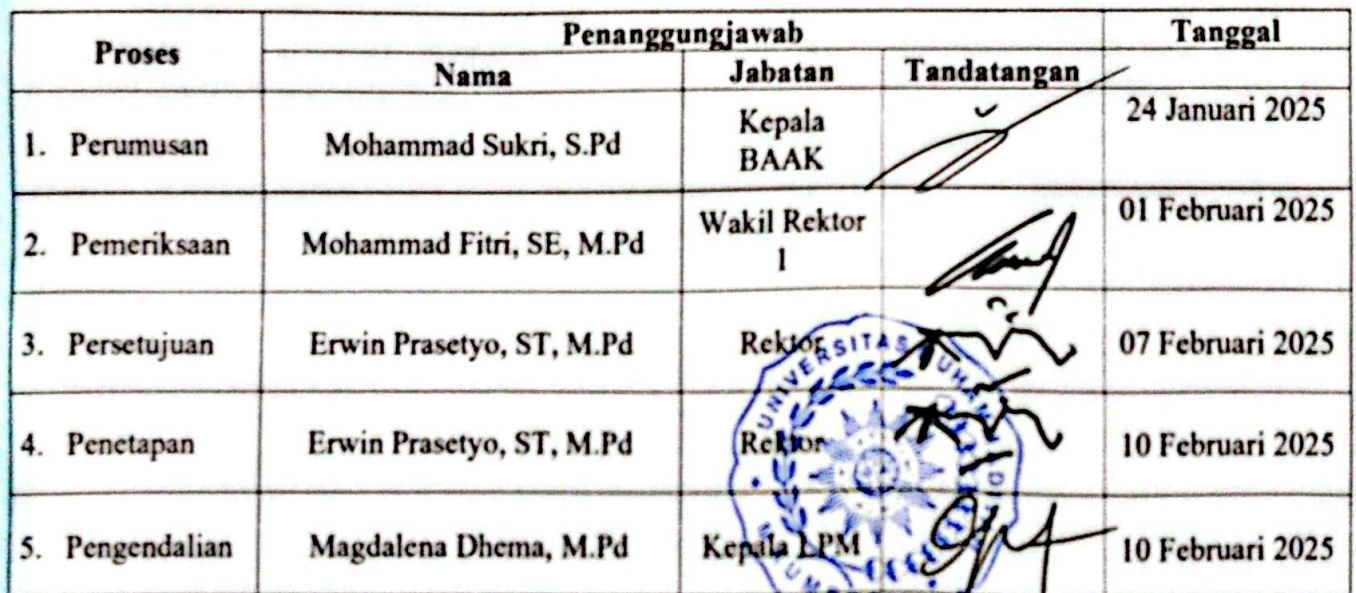 Proses Penanggungjawab Tanggal
Nama Jabatan Tandatangan
1. Perumusan Mohammad Sukri, S.Pd Kepala BAAK 24 Januari 2025
2. Pemeriksaan Mohammad Fitri, SE, M.Pd Wakil Rektor 1 01 Februari 2025
3. Persetujuan Erwin Prasetyo, ST, M.Pd Rektor 07 Februari 2025
4. Penetapan Erwin Prasetyo, ST, M.Pd Rektor 10 Februari 2025
5. Pengendalian Magdalena Dhema, M.Pd Kepala LPM 10 Februari 2025
UNIVERSITAS